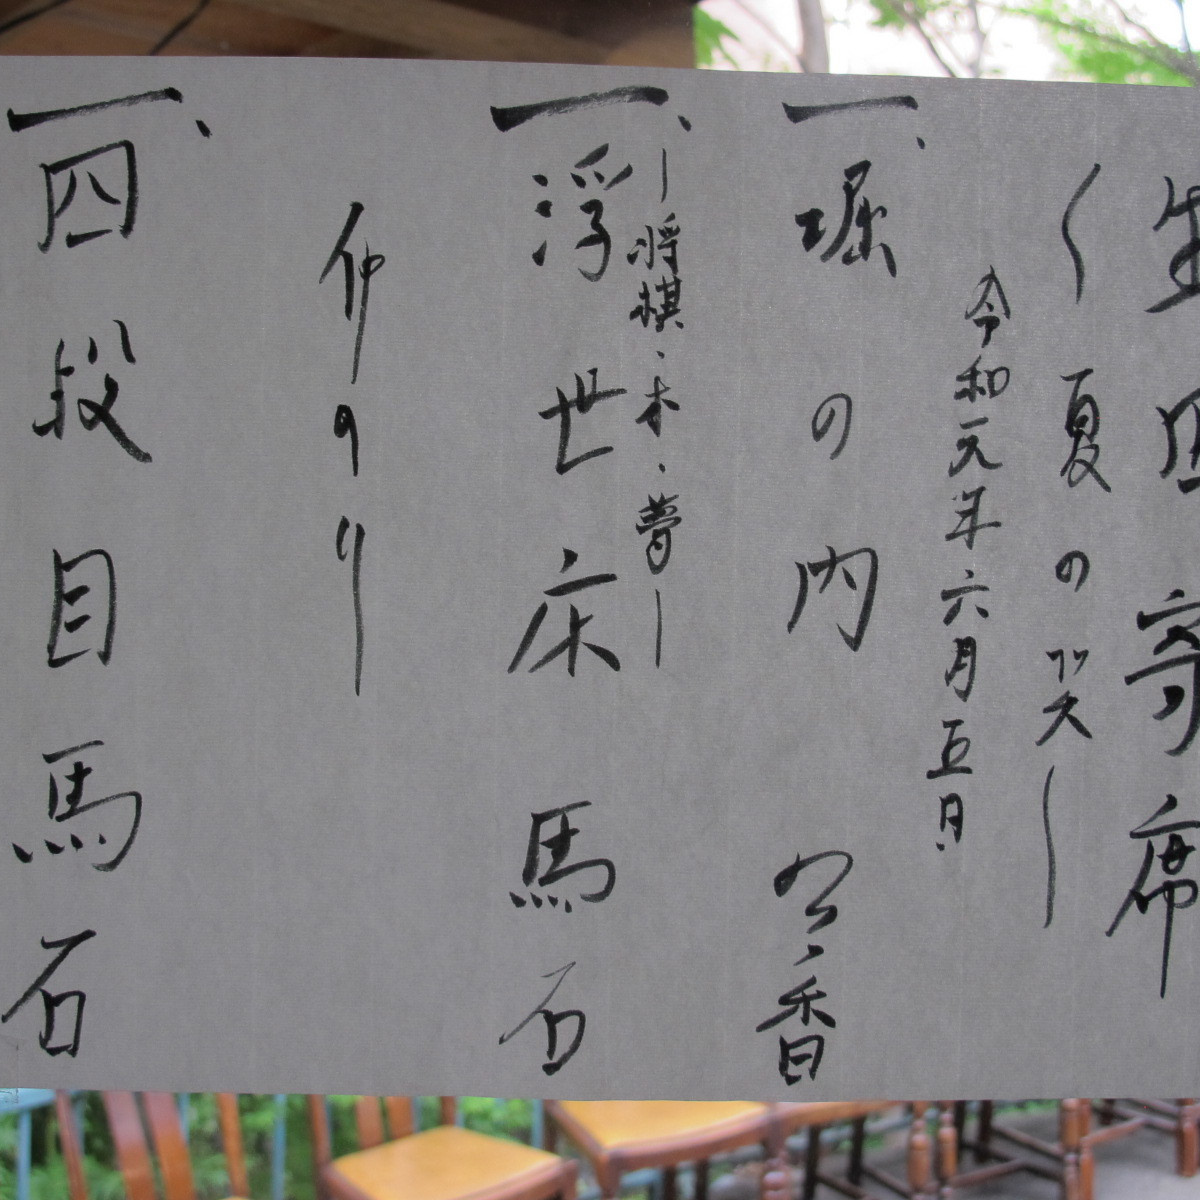 生田寄席
〜夏の笑〜
令和元年六月五日
一、堀の内 公香
ー将棋・本・夢ー
一、浮世床 馬石
仲のり
一、四段目 馬石